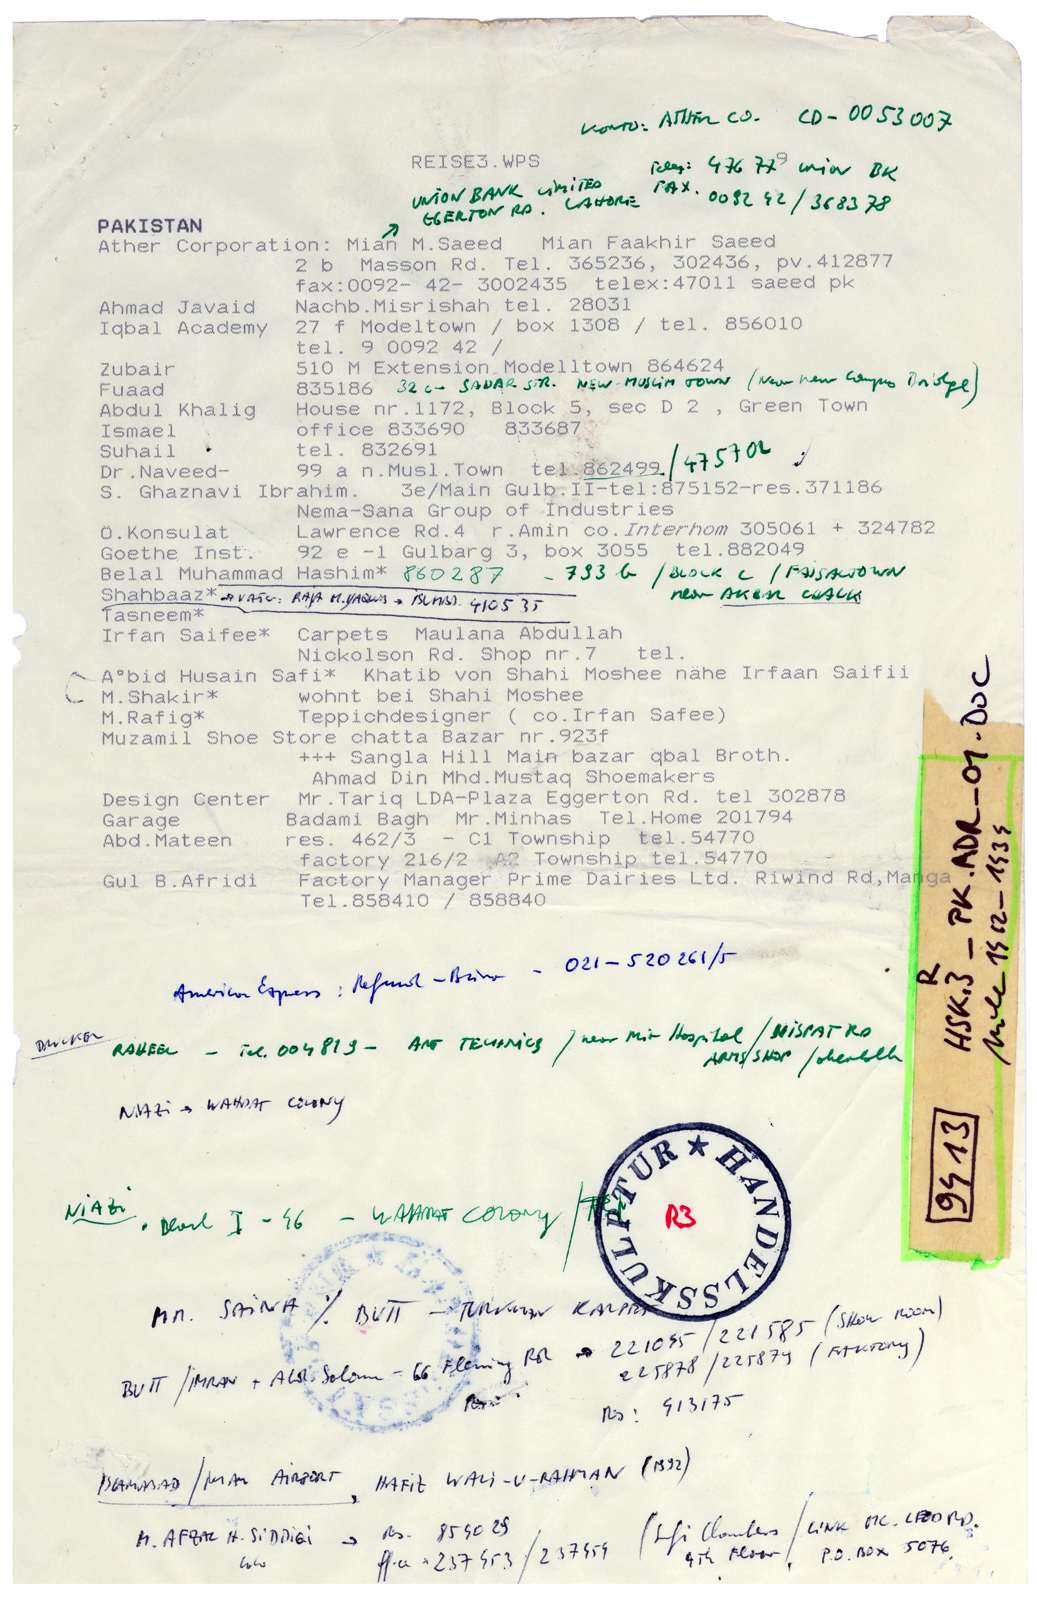 KONTO: ATHER CO. CD-0053007
REISE3.WPS
Telex: 47677 9 union BK
FAX. 0092 42/368378
UNION BANK LIMITED
EGERTON RD. LAHORE
PAKISTAN
Ather Corporation: Mian M.Saeed Mian Faakhir Saeed
2 b Masson Rd. Tel. 365236, 302436, pv.412877
fax:0092- 42- 3002435 telex:47011 saeed pk
Ahmad Javaid Nachb.Misrishah tel. 28031
Iqbal Academy 27 f Modeltown / box 1308 / tel. 856010
tel. 9 0092 42 /
Zubair 510 M Extension Modelltown 864624
Fuaad 835186 32 c- SADAR STR. NEW-MUSLIM TOWN (Near new Campus Bridge)
Abdul Khalig House nr.1172, Block 5, sec D 2 , Green Town
Ismael office 833690 833687
Suhail tel. 832691
Dr.Naveed- 99 a n.Musl.Town tel.862499 /475702
S. Ghaznavi Ibrahim. 3e/Main Gulb.II-tel:875152-res.371186
Nema-Sana Group of Industries
Ö.Konsulat Lawrence Rd.4 r.Amin co.Interhom 305061 + 324782
Goethe Inst. 92 e -1 Gulbarg 3, box 3055 tel.882049
Belal Muhammad Hashim* 860287 - 793 b /BLOCK C / FAISALTOWN
near AKBAR CHAUK
Shahbaaz* → VATER: RAJA M.YAQUB → ISLMBD. 410535
Tasneem*
Irfan Saifee* Carpets Maulana Abdullah
Nickolson Rd. Shop nr.7 tel.
A°bid Husain Safi* Khatib von Shahi Moshee nähe Irfaan Saifii
M.Shakir* wohnt bei Shahi Moshee
M.Rafig* Teppichdesigner ( co.Irfan Safee)
Muzamil Shoe Store chatta Bazar nr.923f
+++ Sangla Hill Main bazar qbal Broth.
Ahmad Din Mhd.Mustaq Shoemakers
Design Center Mr.Tariq LDA-Plaza Eggerton Rd. tel 302878
Garage Badami Bagh Mr.Minhas Tel.Home 201794
Abd.Mateen res. 462/3 - C1 Township tel.54770
factory 216/2 A2 Township tel.54770
Gul B.Afridi Factory Manager Prime Dairies Ltd. Riwind Rd,Manga
Tel.858410 / 858840
American Express: Refund - - 021-520261/5
DRUCKER
RAHEEL - Tel. 004813- ART TECHNICS / near Hospital / HISPAT RD
ARMS/SHOP /
NIAZI → WAHDAT COLONY
NIAZI. I - 46 - WAHDAT COLONY /
HANDELSSKULPTUR ★
R3
MR. % BUTT - TURKMAN
BUTT /IMRAN + ABD. Salam - 66 Fleming Rd. → 221095/221585 (SHOW ROOM)
225878/225879 (FAKTORY)
Rs: 413175
ISLAMABAD / AIRPORT, HAFIZ WALI-U-RAHMAN (1992)
M. AFZAL H. SIDDIQI → Rs. 854029
office → 237953/237959 (Safi Chambers / LINK RD.
4th Floor, P.O.BOX 5076
R
HSK.3 - PK.ADR-01-DOC
1992-1939
9413